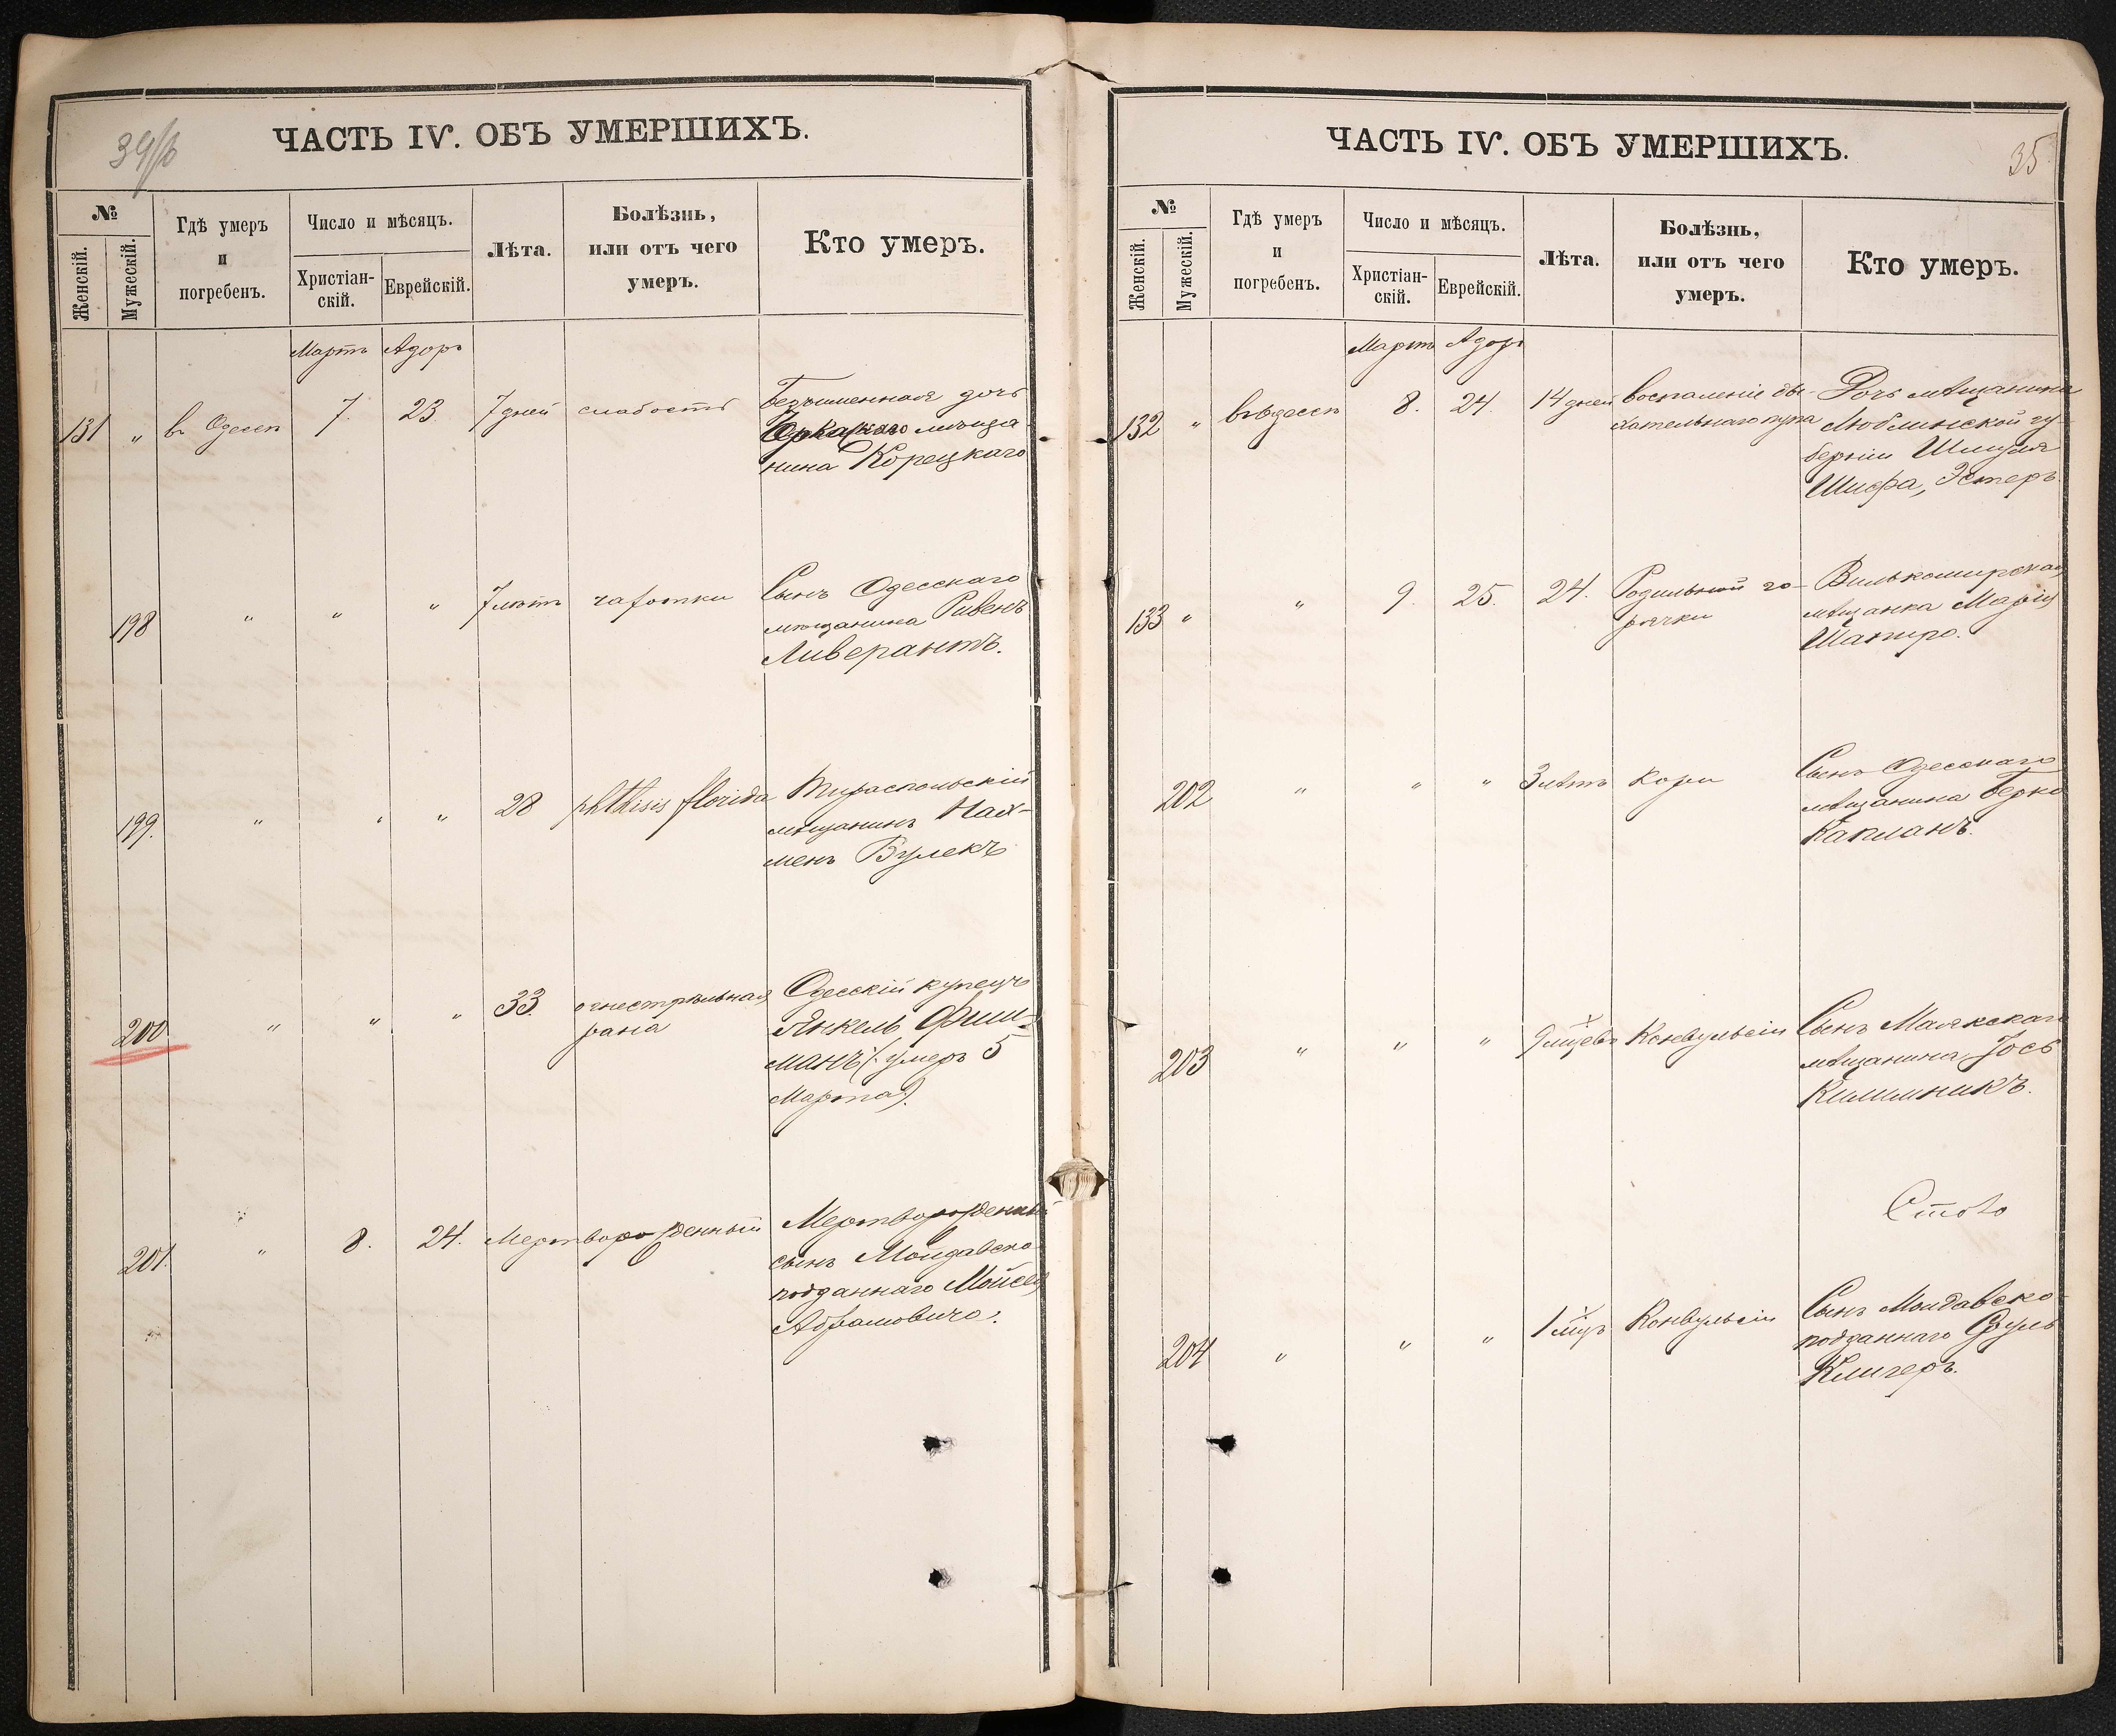 ЧАСТЬ IV. ОБЪ УМЕРШИХЪ.
№
Женскій.
Мужескій.
Гдѣ умеръ
и
погребенъ.
Число и мѣсяцъ.
Христіан-
скій.
Еврейскій.
Лѣта.
Болѣзнь,
или отъ чего
умеръ.
Кто умеръ.
Мартъ Адоръ
131 " въ Одессѣ 7. 23. 7 дней слабость Безъименная дочь
мѣща
нина Корецкаго
198 " " " 7 лѣтъ чахотки Сынъ Одесскаго
мѣщанина Ривенъ
Ливерантъ.
199. " " " 28 phthisis florida Тираспольскій
мѣщанинъ Нах-
менъ Вулекъ
200 " " " 33. огнестрѣльная Одесскій купецъ
рана Янкель Фиш-
манъ (умеръ 5
Марта).
201. " 8. 24. Мертворожденный Мертворожденный
сынъ Молдавско
подданнаго Мойсея
Абрамовича.
ЧАСТЬ IV. ОБЪ УМЕРШИХЪ.
35
№
Женскій.
Мужескій.
Гдѣ умеръ
и
погребенъ.
Число и мѣсяцъ.
Христіан-
скій.
Еврейскій.
Лѣта.
Болѣзнь,
или отъ чего
умеръ.
Кто умеръ.
Мартъ Адоръ
132 " въ Одессѣ 8. 24. 14 дней воспаленіе ды- Дочь мѣщанина
хательнаго пути Люблинской гу-
берніи Шмуля
Шифра, Эстеръ.
133 " " 9. 25. 24. Родильной го- Вилькомирская
рячки мѣщанка Марія
Шапиро.
202 " " " 3 лѣтъ Кори Сынъ Одесскаго
мѣщанина Берко
Капланъ.
203 " " " 9 мцевъ Конвульсіи Сынъ Маякскаго
мѣщанина Іось
204 " " " 1 мцъ Конвульсіи Сынъ Молдавско
подданнаго
Клигеръ.